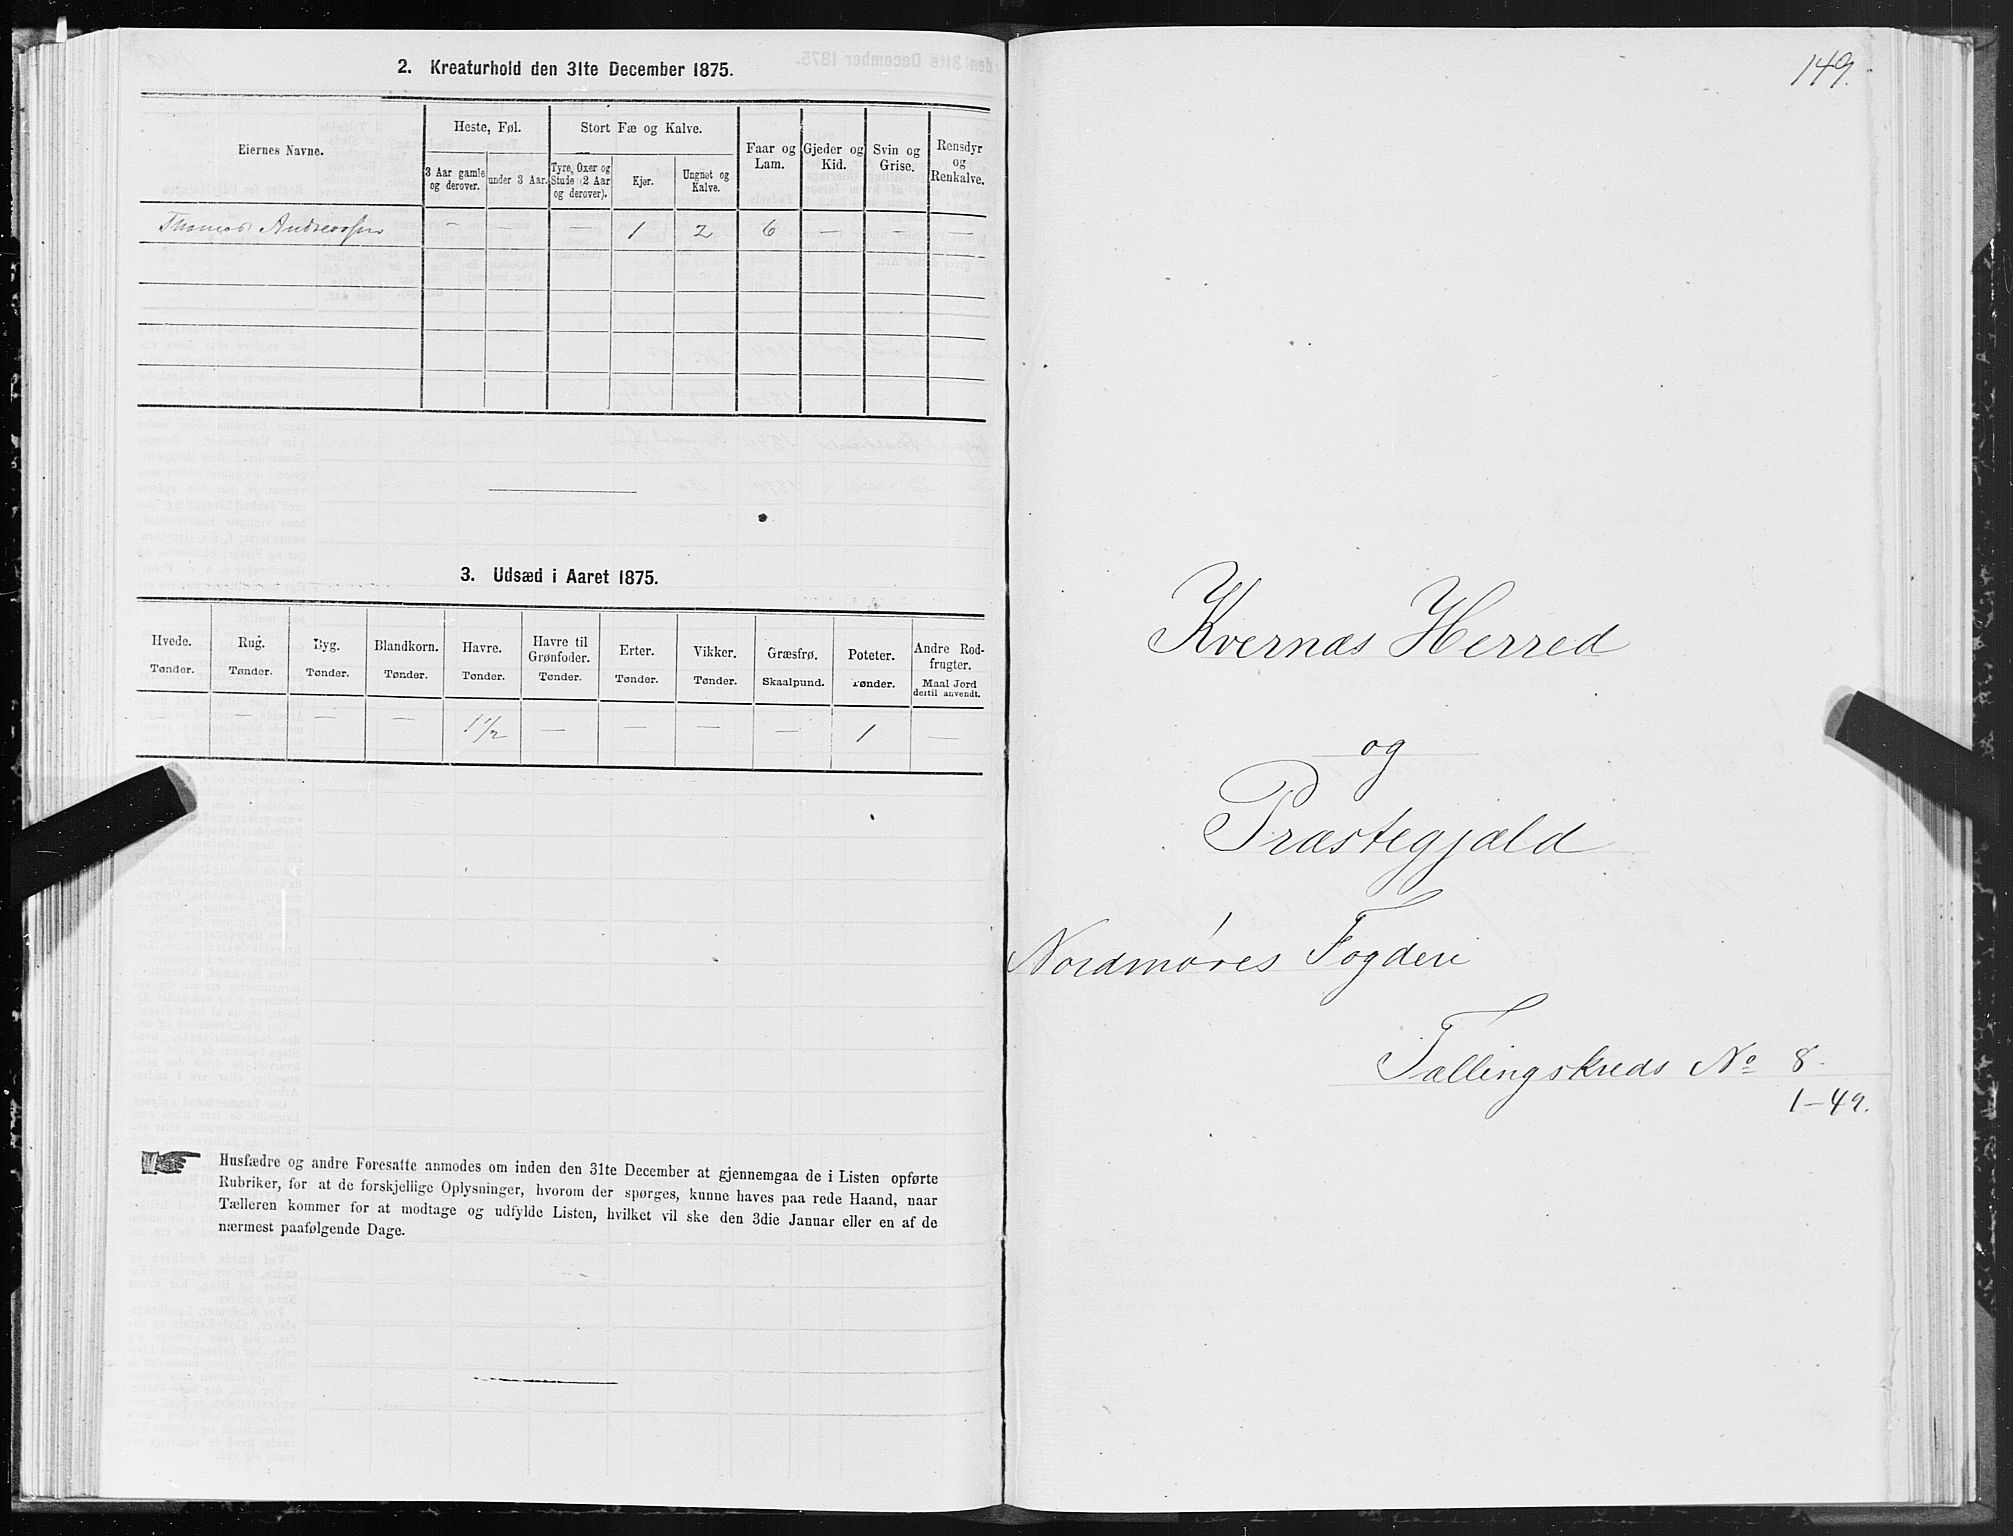 2. Kreaturhold den 31te December 1875.
Eiernes Navne.
Heste, Føl.
Stort Fæ og Kalve.
Faar og Lam.
Gjeder og Kid.
Svin og Grise.
Rensdyr og Renkalve.
3 Aar gamle og derover.
under 3 Aar.
Tyre, Oxer og Stude (2 Aar og derover).
Kjør.
Ungnøt og Kalve.
Thomas Andreassen — — — 1 2 6 — — —
3. Udsæd i Aaret 1875.
Hvede. Rug. Byg. Blandkorn. Havre. Havre til Grønfoder. Erter. Vikker. Græsfrø. Poteter. Andre Rodfrugter.
Tønder. Tønder. Tønder. Tønder. Tønder. Tønder. Tønder. Tønder. Skaalpund. Tønder. Maal Jord dertil anvendt.
— — — — 1 1/2 — — — — 1 —
Husfædre og andre Foresatte anmodes om inden den 31te December at gjennemgaa de i Listen opførte
Rubriker, for at de forskjellige Oplysninger, hvorom der spørges, kunne haves paa rede Haand, naar
Tælleren kommer for at modtage og udfylde Listen, hvilket vil ske den 3die Januar eller en af de
nærmest paafølgende Dage.
149.
Kvernæs Herred
og
Præstegjæld
Nordmøres Fogderi
Tællingskreds No 8
1—49.